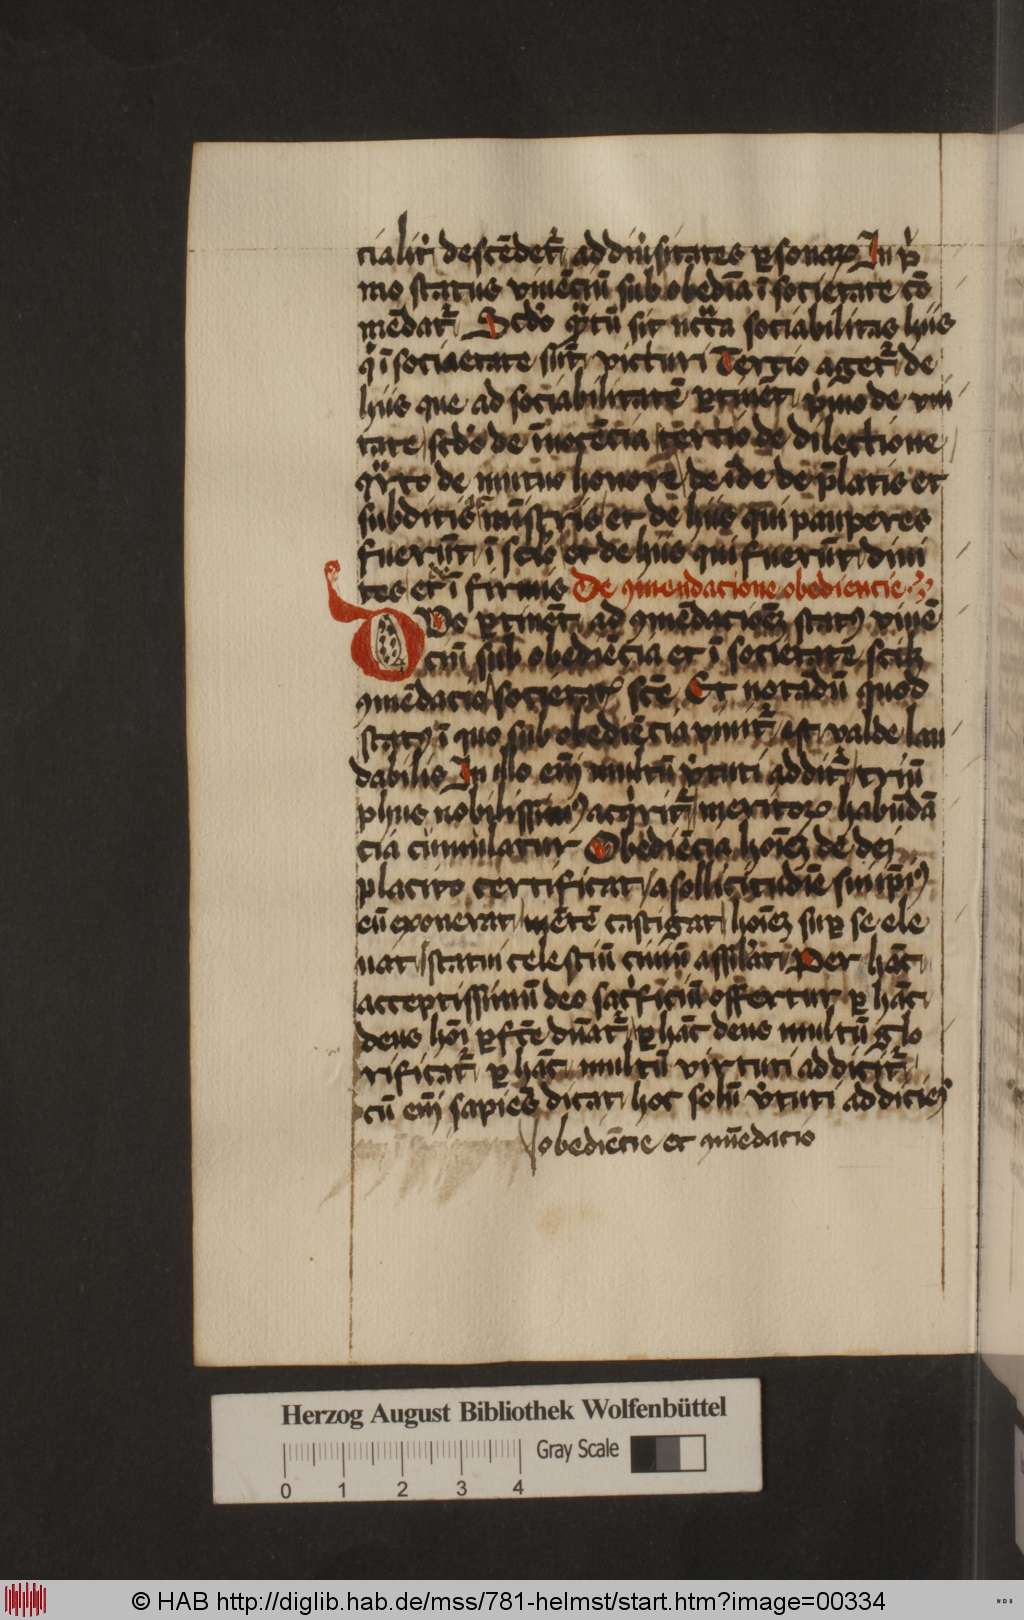 cialit' descēdet᷑ ad diu'sitates ꝑsonaꝝ In p'
mo status viuēciū sub obediā ī societate cō
mēdat᷑ Scd'o qͣtū sit nctā sociabilitas hiis
qͥ ī sociaetate sūt victuri Tercio aget᷑ de
hiis que ad sociabilitatē ꝑtinēt pͥmo de vni
tate scd'o de īnocēcia tertio de dilectione
qͣrto de mutuo honore deīde de p̄latis et
subditis mīstris et de hiis qui pauperes
fuerūt ī sclo et de hiis qui fuerūt diui
tes et ī firmis De ꝯmendacione obediencie
Duo ꝑtinēt ad ꝯmēdacionē statꝰ viuē
ciū sub obediēcia et ī societate scilꝫ
ꝯmēdacio societat' scē Et notādū quod
statꝰ ī quo sub obediēcia viuit᷑ est valde lau
dabilis In illo em̄ multū v'tuti addit᷑ triū
phus nobilissimꝰ acqͥrit᷑ meritoꝝ habūdā
cia cumulatur Obediēcia hoīeꝫ de dei
placito certificat a sollicitudīe sui ip̄iꝰ
eū exonerat mētē castigat hoīeꝫ suꝑ se ele
uat statui celestiū ciuiū assil'at Per hāc
acceptissimū deo sac'ficiū offertur ꝑ hāc
deus hōi ꝑfcē dn̄at᷑ ꝑ hāc deus multū glo
rificat᷑ ꝑ hāc multū virtuti addicit᷑
cū em̄ sapiēs dicat hoc solū v'tuti addiciēꝰ
obediēcie et ꝯmēdacio
Herzog August Bibliothek Wolfenbüttel
Gray Scale
0 1 2 3 4
© HAB http://diglib.hab.de/mss/781-helmst/start.htm?image=00334